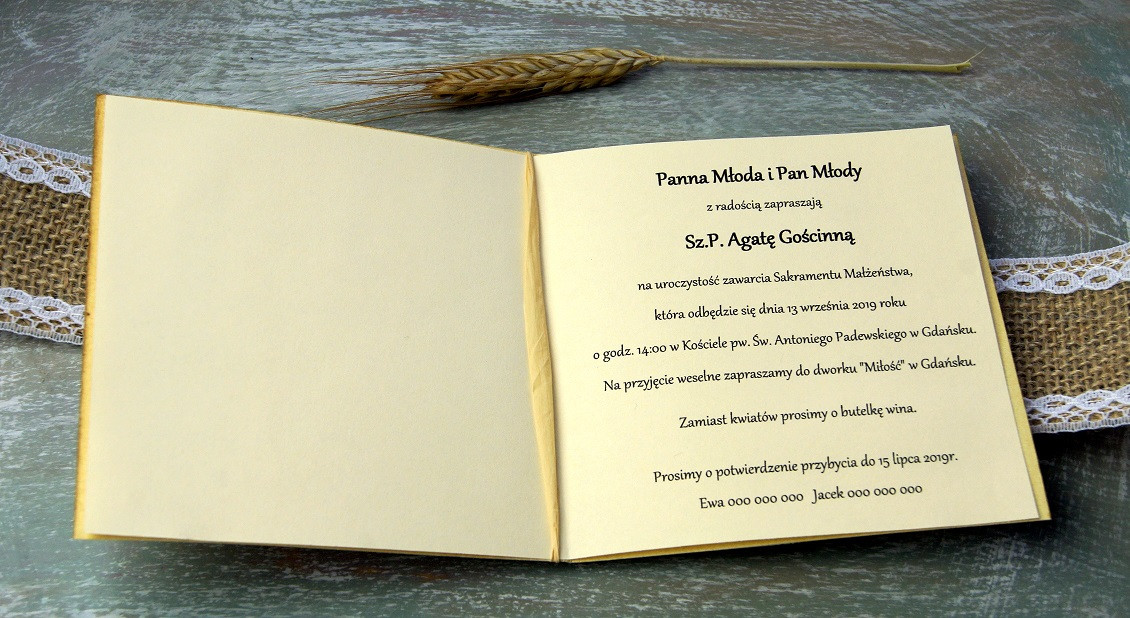 Panna Młoda i Pan Młody
z radością zapraszają
Sz.P. Agatę Gościnną
na uroczystość zawarcia Sakramentu Małżeństwa,
która odbędzie się dnia 13 września 2019 roku
o godz. 14:00 w Kościele pw. Św. Antoniego Padewskiego w Gdańsku.
Na przyjęcie weselne zapraszamy do dworku "Miłość" w Gdańsku.
Zamiast kwiatów prosimy o butelkę wina.
Prosimy o potwierdzenie przybycia do 15 lipca 2019r.
Ewa 000 000 000 Jacek 000 000 000